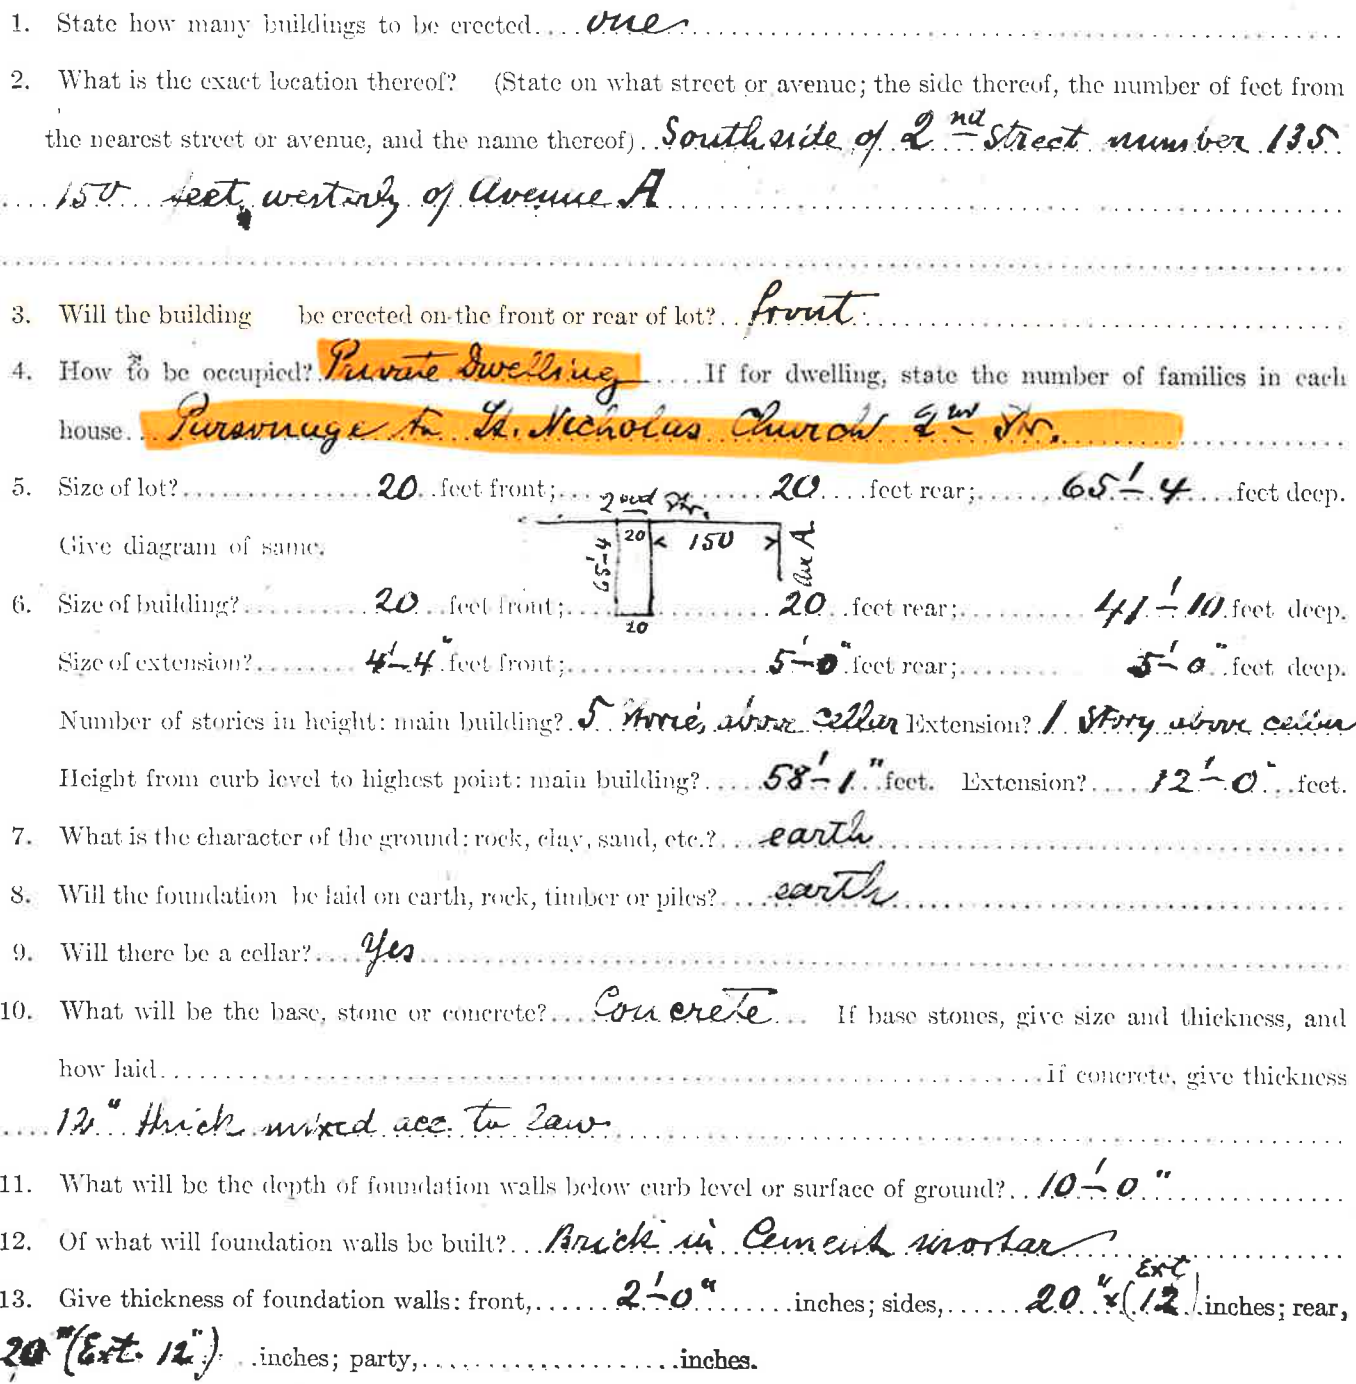 1. State how many buildings to be erected.... one
2. What is the exact location thereof? (State on what street or avenue; the side thereof, the number of feet from
the nearest street or avenue, and the name thereof) South side of 2nd Street number 135
150 feet, westerly of Avenue A
3. Will the building be erected on the front or rear of lot? front
4. How to be occupied? Private Dwelling If for dwelling, state the number of families in each
house Parsonage to St. Nicholas Church 2nd Str.
5. Size of lot? 20 feet front; 20 feet rear; 65'-4 feet deep.
2nd Str.
Give diagram of same.
65'-4 20 150 Ave A
20
6. Size of building? 20 feet front; 20 feet rear; 41'-10 feet deep.
Size of extension? 4'-4" feet front; 5'-0" feet rear; 5'-0" feet deep.
Number of stories in height: main building? 5 stories above cellar Extension? 1 Story above cellar
Height from curb level to highest point: main building? 58'-1" feet. Extension? 12'-0" feet.
7. What is the character of the ground: rock, clay, sand, etc.? earth
8. Will the foundation be laid on earth, rock, timber or piles? earth
9. Will there be a cellar? Yes
10. What will be the base, stone or concrete? Concrete If base stones, give size and thickness, and
how laid if concrete, give thickness
12" thick mixed acc. to law
11. What will be the depth of foundation walls below curb level or surface of ground? 10'-0"
12. Of what will foundation walls be built? Brick in Cement mortar
13. Give thickness of foundation walls: front, 2'-0" inches; sides, 20" (Ext 12) inches; rear,
20" (Ext. 12") inches; party, inches.